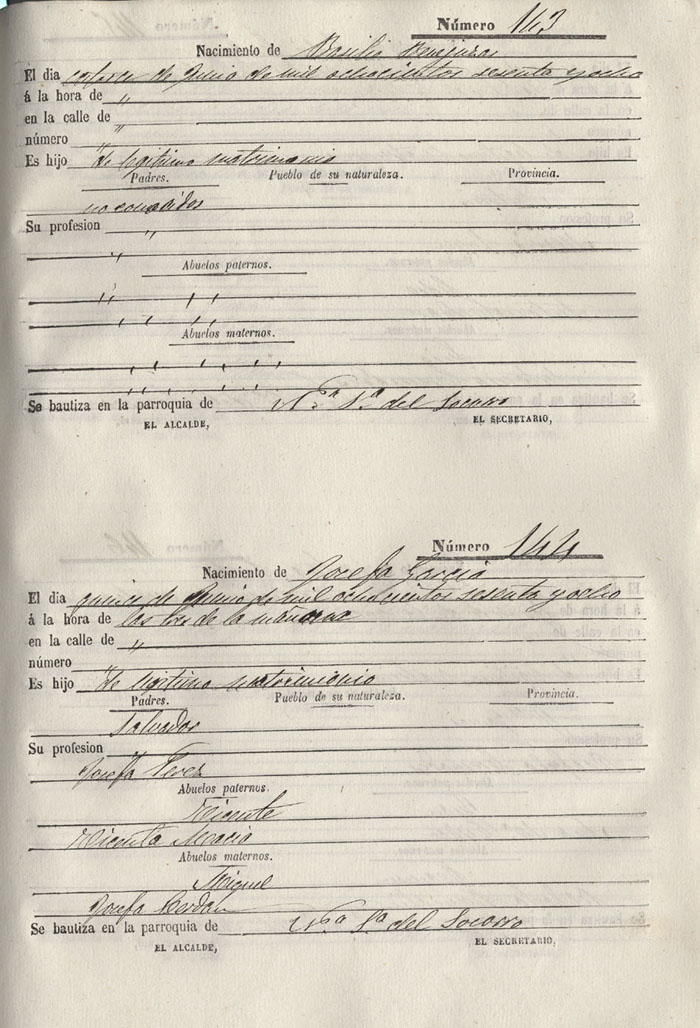 Número 143
Nacimiento de Basilio
El dia catorce de Junio de mil ochocientos sesenta y ocho
á la hora de "
en la calle de "
número "
Es hijo de legitimo matrimonio
Padres. Pueblo de su naturaleza. Provincia.
no conocidos
Su profesion "
"
Abuelos paternos.
Abuelos maternos.
Se bautiza en la parroquia de Nª Sª del Socorro
EL ALCALDE, EL SECRETARIO,
Número 144
Nacimiento de Josefa Garcia
El dia quince de Junio de mil ochocientos sesenta y ocho
á la hora de las tres de la mañana
en la calle de "
número "
Es hijo de legitimo matrimonio
Padres. Pueblo de su naturaleza. Provincia.
Salvador
Su profesion
Josefa Perez
Abuelos paternos.
Vicente
Vicenta Macia
Abuelos maternos.
Miguel
Josefa Cerdan
Se bautiza en la parroquia de Nª Sª del Socorro
EL ALCALDE, EL SECRETARIO,